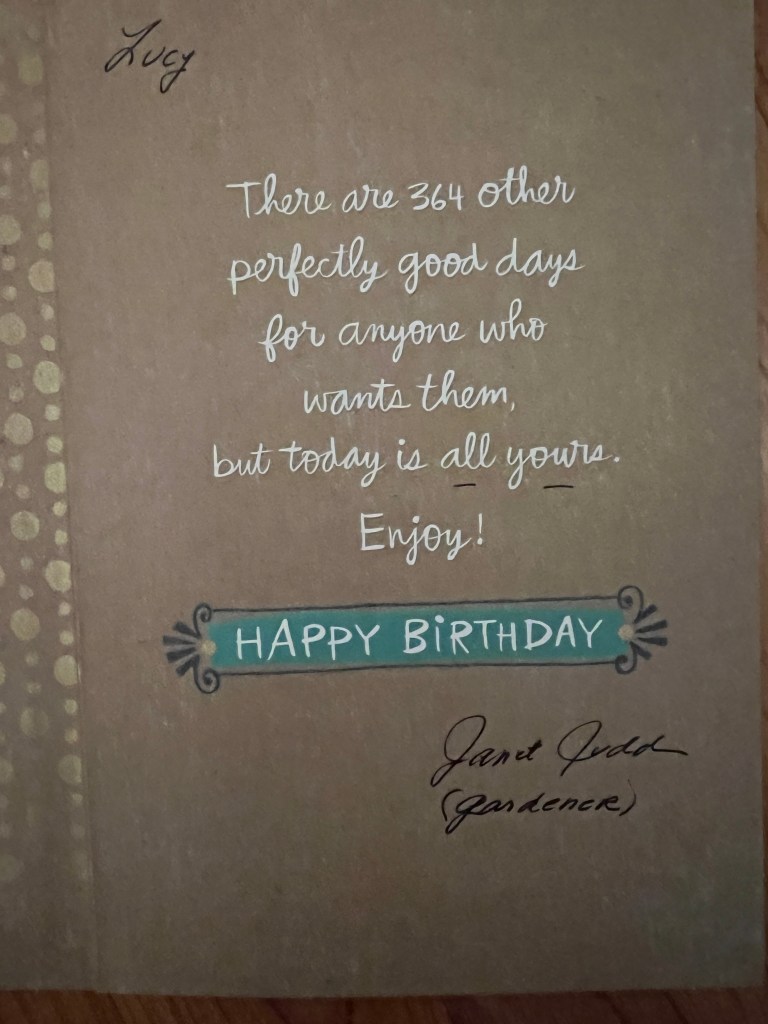 Lucy
There are 364 other
perfectly good days
for anyone who
wants them,
but today is all yours.
Enjoy!
HAPPY BiRTHDAY
Janet Judd
(gardener)